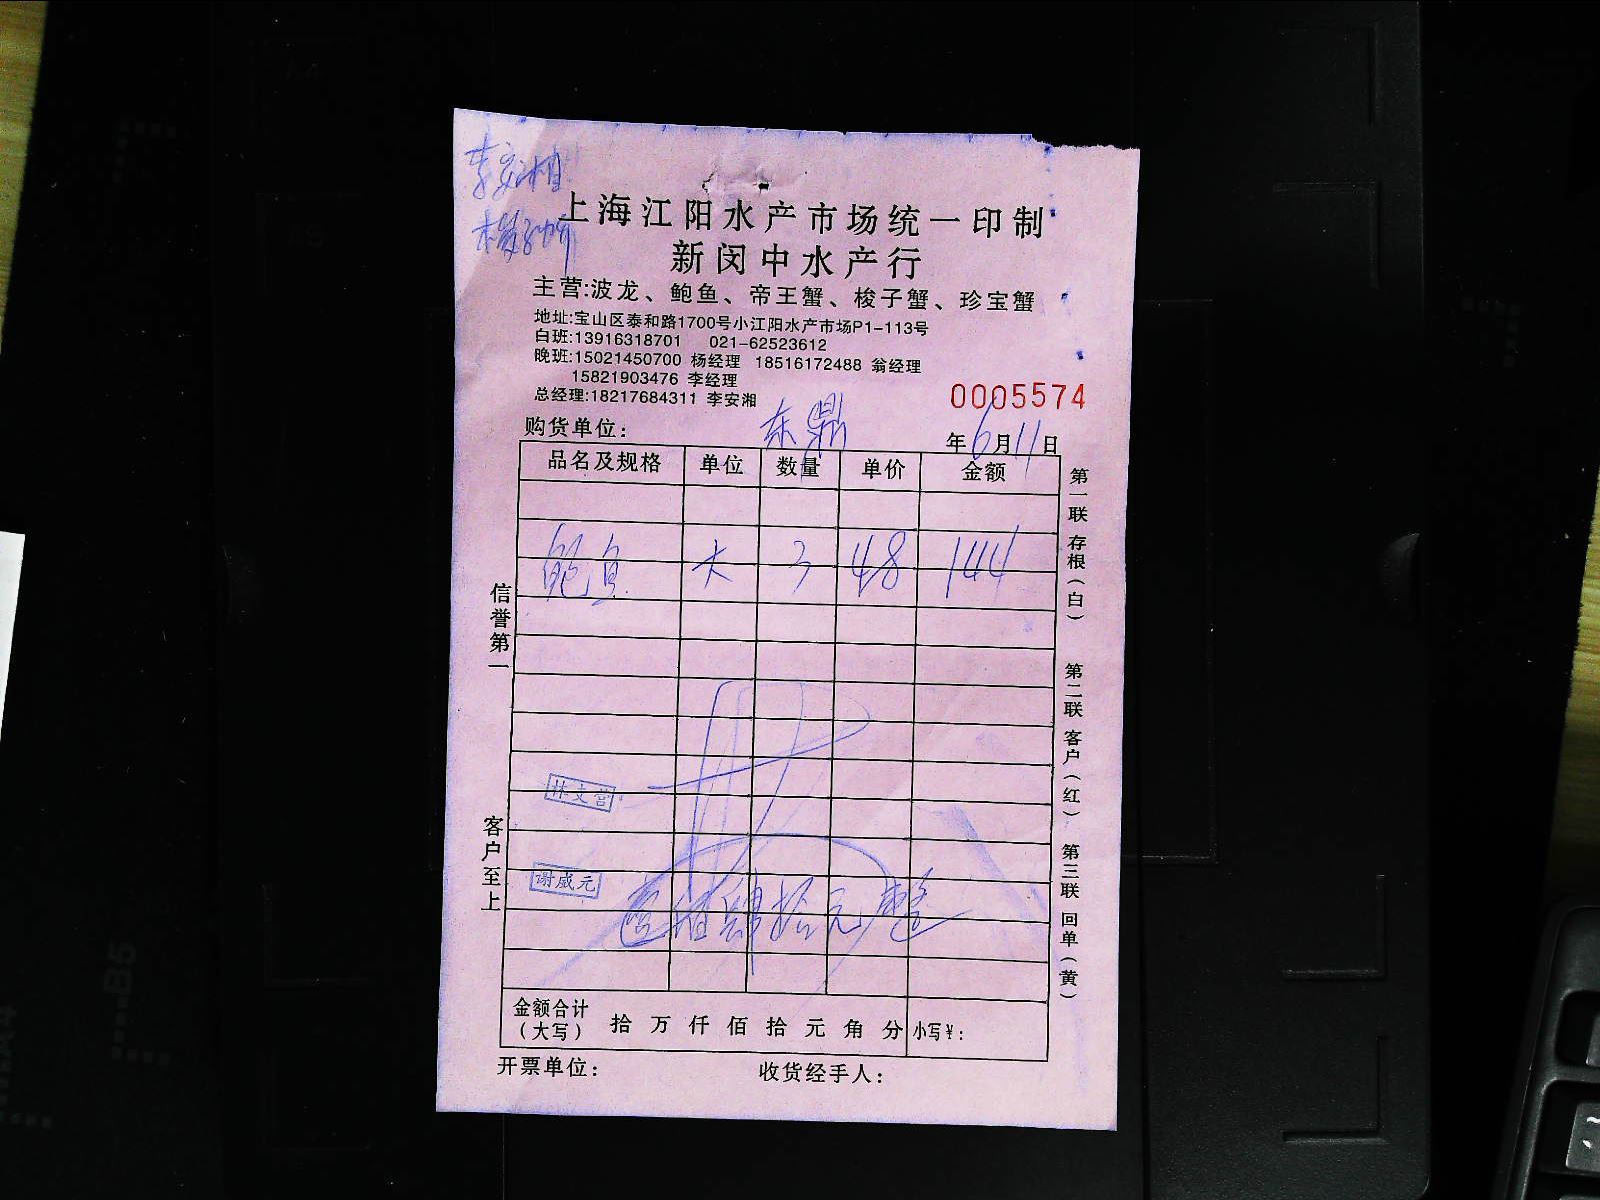 李安湘
上海江阳水产市场统一印制
新闵中水产行
主营:波龙、鲍鱼、帝王蟹、梭子蟹、珍宝蟹
地址:宝山区泰和路1700号小江阳水产市场P1-113号
白班:13916318701 021-62523612
晚班:15021450700 杨经理 18516172488 翁经理
15821903476 李经理
总经理:18217684311 李安湘
0005574
购货单位: 东鼎 年6月11日
品名及规格 单位 数量 单价 金额
鲍鱼 大 3 48 144
林文营
谢威元
壹佰肆拾元整
金额合计
(大写) 拾 万 仟 佰 拾 元 角 分 小写¥:
开票单位: 收货经手人:
信誉第一
客户至上
第一联 存根(白)
第二联 客户(红)
第三联 回单(黄)
B5